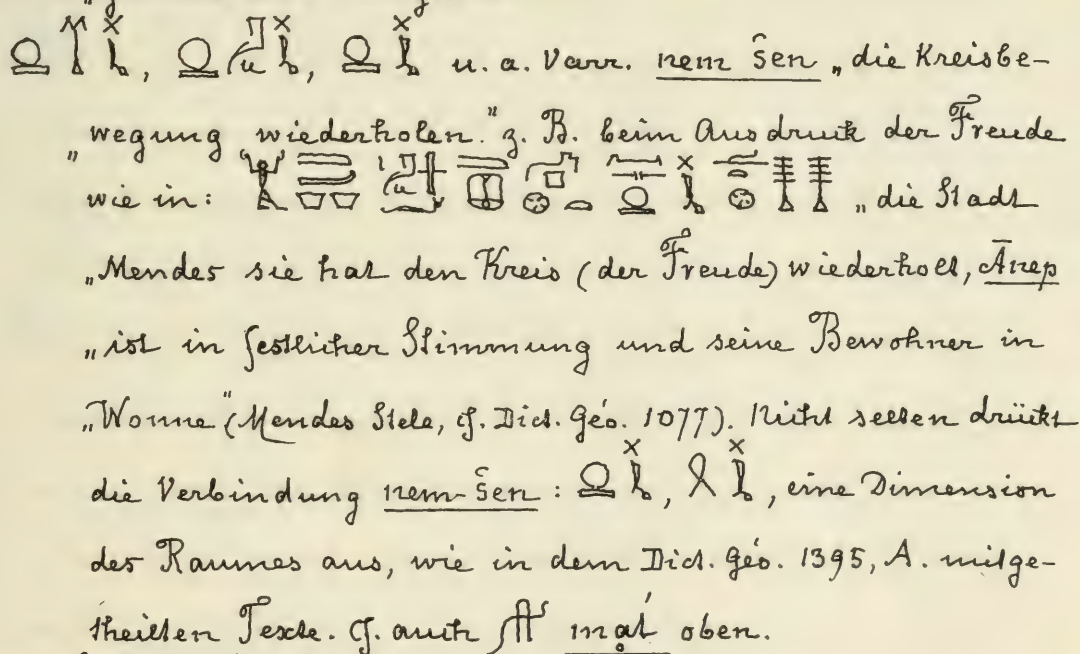 u. a. Varr. nem šen „die Kreisbe-
„wegung wiederholen." z. B. beim Ausdruck der Freude
wie in: „die Stadt
„Mendes sie hat den Kreis (der Freude) wiederholt, Ānep
„ist in festlicher Stimmung und seine Bewohner in
„Wonne" (Mendes Stele, cf. Dict. Géo. 1077). Nicht selten drückt
die Verbindung nem-šen: , , eine Dimension
des Raumes aus, wie in dem Dict. géo. 1395, A. mitge-
theilten Texte. Cf. auch oben.